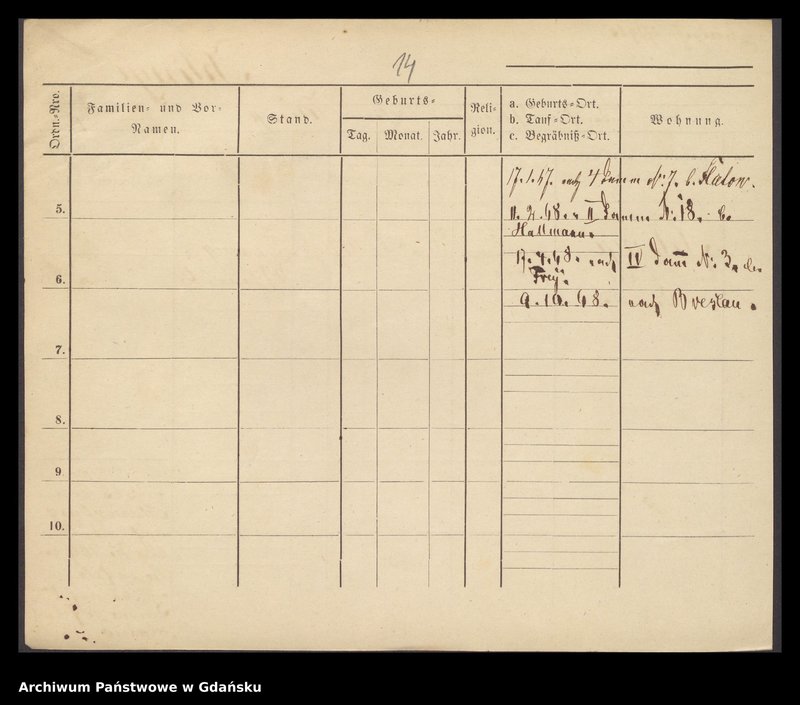 14
Ordn.-Nro.
Familien- und Vor-
Namen.
Stand.
Geburts-
Tag. Monat. Jahr.
Reli-
gion.
a. Geburts-Ort.
b. Tauf-Ort.
c. Begräbniß-Ort.
Wohnung.
17.1.47. nach 4 Damm N: 7. b. Flatow.
5.
11.2.48. " II Damm N: 18. b.
Hallmann.
17.4.48. nach IV Dam̅ N: 3. bei
Frey.
6.
9.10.48. nach Breslau.
7.
8.
9
10.
Archiwum Państwowe w Gdańsku